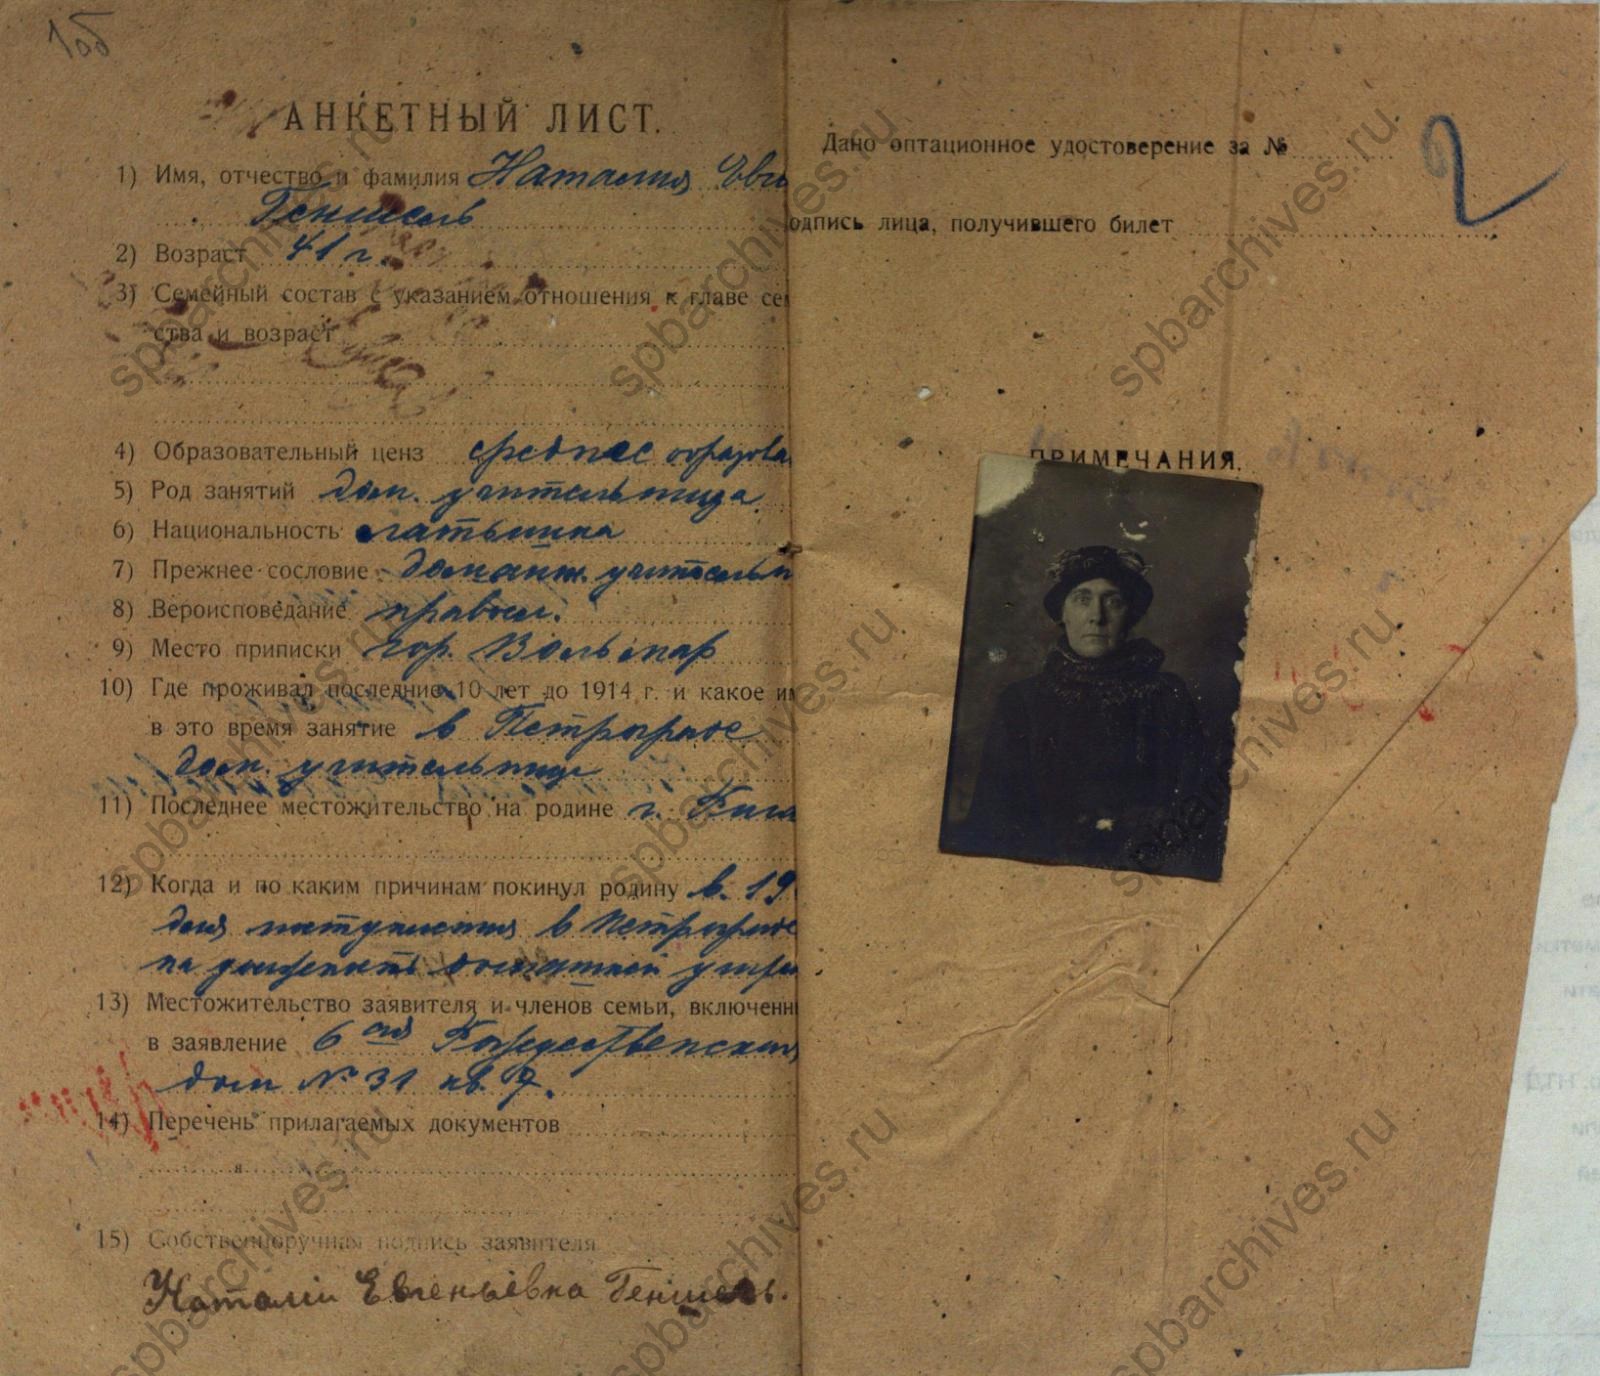 1об
АНКЕТНЫЙ ЛИСТ.
1) Имя, отчество и фамилия Наталия Евге
Геншель
2) Возраст 41 г.
3) Семейный состав с указанием отношения к главе сем
ства и возраст
4) Образовательный ценз среднее образова
5) Род занятий дом. учительница
6) Национальность латышка
7) Прежнее сословие домашн. учительн
8) Вероисповедание правосл.
9) Место приписки гор. Вольмар
10) Где проживал последние 10 лет до 1914 г. и какое им
в это время занятие в Петрограде
дом. учительниц
11) Последнее местожительство на родине г. Рига
12) Когда и по каким причинам покинул родину в 19
для поступления в Петрограде
на должность домашней учит
13) Местожительство заявителя и членов семьи, включенны
в заявление 6ая Рождественская
дом № 31 кв. 7.
14) Перечень прилагаемых документов
15) Собственноручная подпись заявителя
Наталiи Евгеньевна Геншель.
Дано оптационное удостоверение за №
2
одпись лица, получившего билет
ПРИМЕЧАНИЯ.
spbarchives.ru
spbarchives.ru
spbarchives.ru
spbarchives.ru
spbarchives.ru
spbarchives.ru
spbarchives.ru
spbarchives.ru
spbarchives.ru